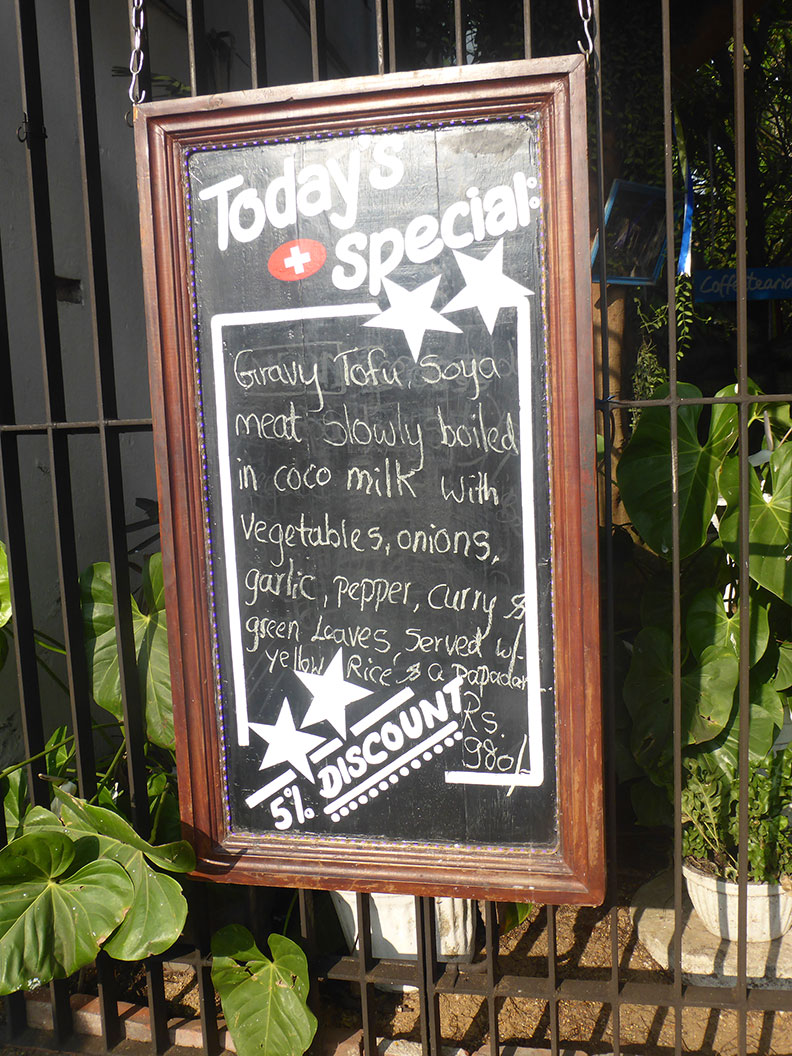 Today's
special:
Gravy Tofu, Soya
meat slowly boiled
in coco milk with
vegetables, onions,
garlic, pepper, curry &
green Leaves, Served w/-
yellow Rice & a papadam
Rs.
980/-
5% DISCOUNT